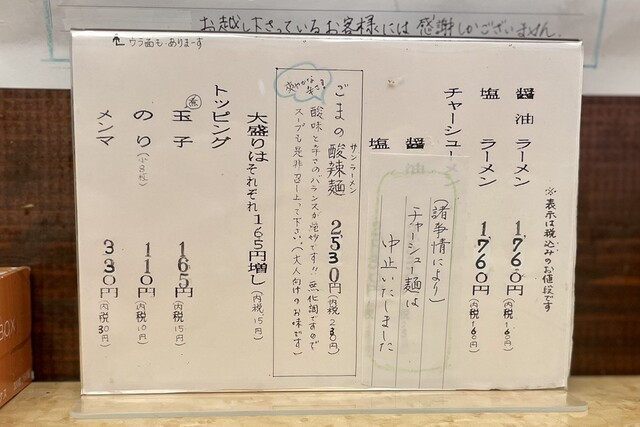 お越し下さっているお客様には感謝しかございません。
ウラ面も、ありまーす
※表示は税込みのお値段です
醤油ラーメン 1,760円(内税160円)
塩ラーメン 1,760円(内税160円)
チャーシューメ
醤
塩
(諸事情により)
チャーシュー麺は
中止いたしました
サンラーメン
ごまの酸辣麺 2,530円(内税230円)
爽やかな辛さ
酸味と辛さのバランスが絶妙です!!無化調ですので
スープも是非召し上って下さい(大人向けのお味です)
大盛りはそれぞれ165円増し(内税15円)
トッピング
玉子 165円(内税15円)
のり 110円(内税10円)
メンマ 330円(内税30円)
BOX